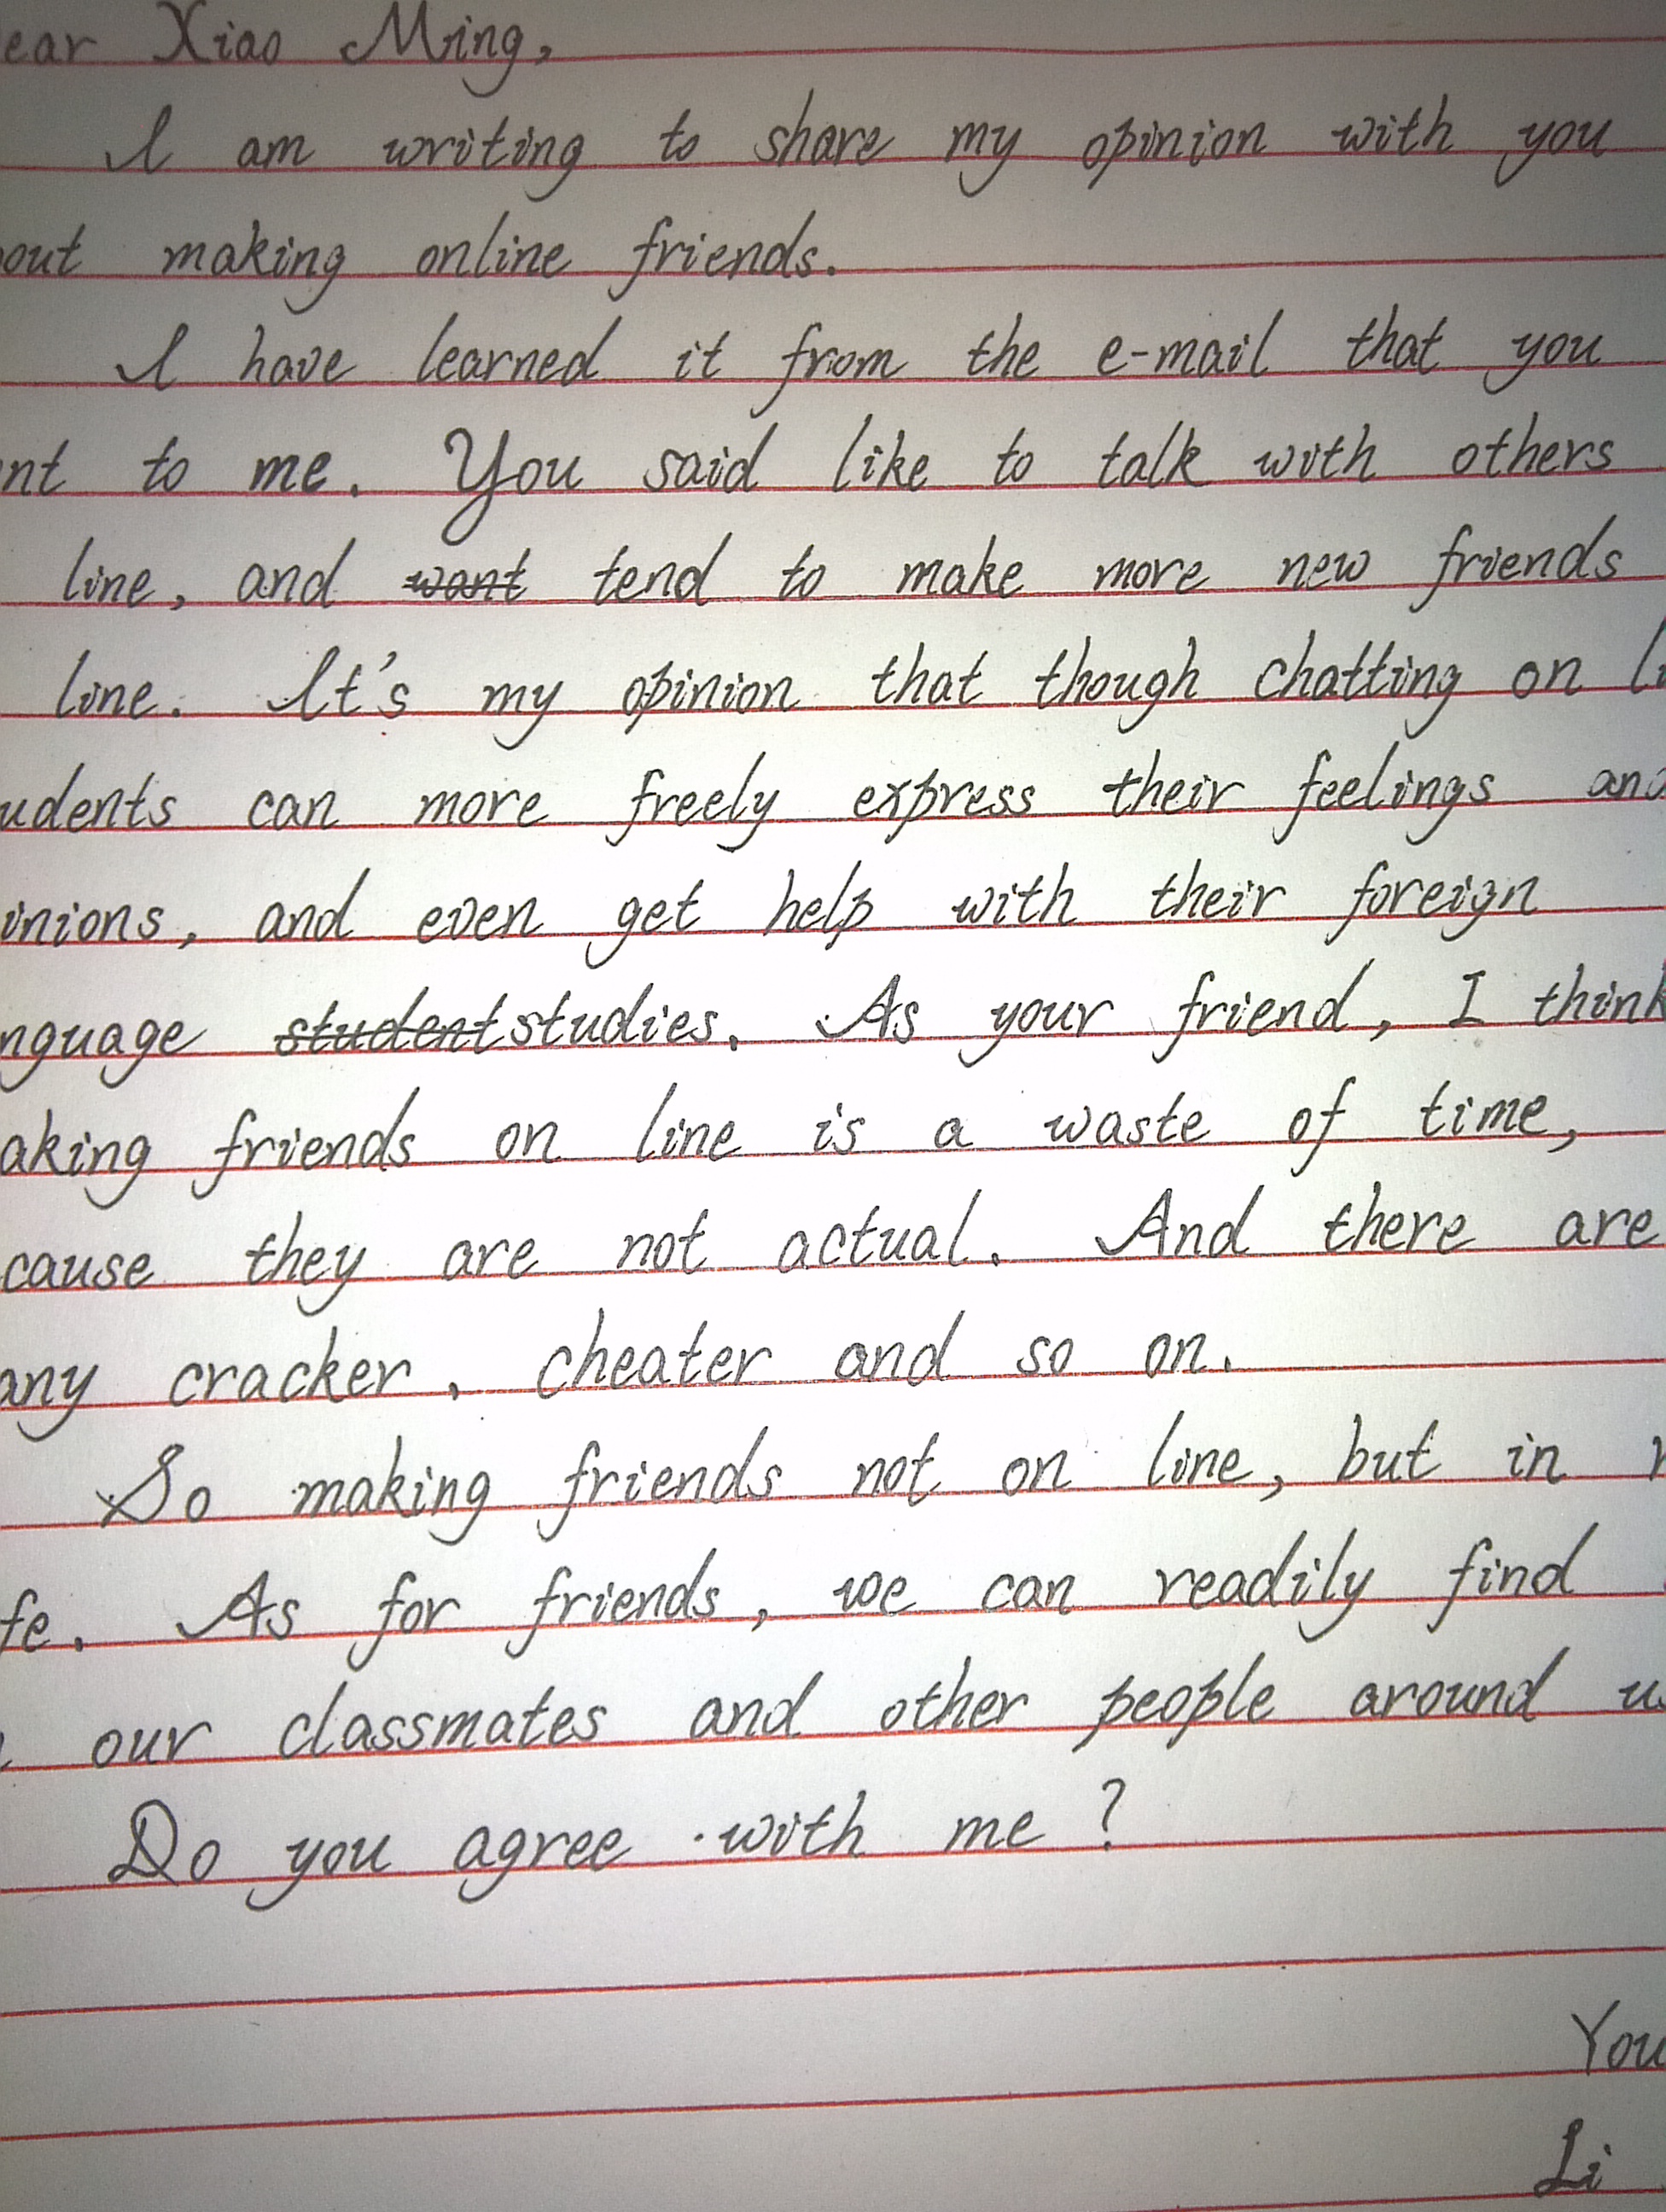 ear Xiao Ming,
I am writing to share my opinion with you
out making online friends.
I have learned it from the e-mail that you
nt to me. You said like to talk with others
line, and want tend to make more new friends
line. It's my opinion that though chatting on li
udents can more freely express their feelings and
inions, and even get help with their foreign
nguage student studies. As your friend, I think
aking friends on line is a waste of time,
cause they are not actual. And there are
any cracker, cheater and so on.
So making friends not on line, but in
fe. As for friends, we can readily find
our classmates and other people around us
Do you agree with me?
You
Li